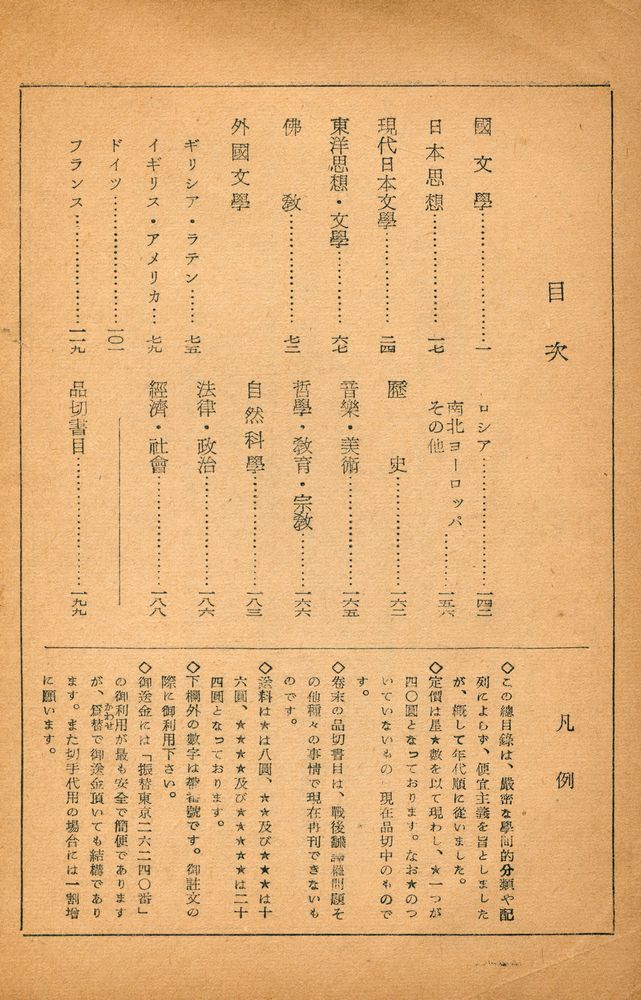 目次
國文學……………一
日本思想……………一七
現代日本文學……………二四
東洋思想・文學……………六七
佛教……………七三
外國文學
ギリシア・ラテン……七五
イギリス・アメリカ…七九
ドイツ……………一〇一
フランス……………一一九
ロシア……………一四二
南北ヨーロッパ
その他……………一五六
歷史……………一六二
音樂・美術……………一六五
哲學・敎育・宗敎……一六六
自然科學……………一八三
法律・政治……………一八六
經濟・社會……………一八八
品切書目……………一九九
凡例
◇この總目錄は、嚴密な學問的分類や配
列によらず、便宜主義を旨としました
が、槪して年代順に從いました。
◇定價は星★數を以て現わし、★一つが
四〇圓となっております。なお★のつ
いていないもの 現在品切中のもので
す。
◇卷末の品切書目は、戰後飜譯權問題そ
の他種々の事情で現在再刊できないも
のです。
◇送料は★は八圓、★★及び★★★は十
六圓、★★★★及び★★★★★は二十
四圓となっております。
◇下欄外の數字は帶番號です。御註文の
際に御利用下さい。
◇御送金には「振替東京二六二四〇番」
の御利用が最も安全で簡便であります
が、爲替で御送金頂いても結構であり
かわせ
ます。また切手代用の場合には一割增
に願います。